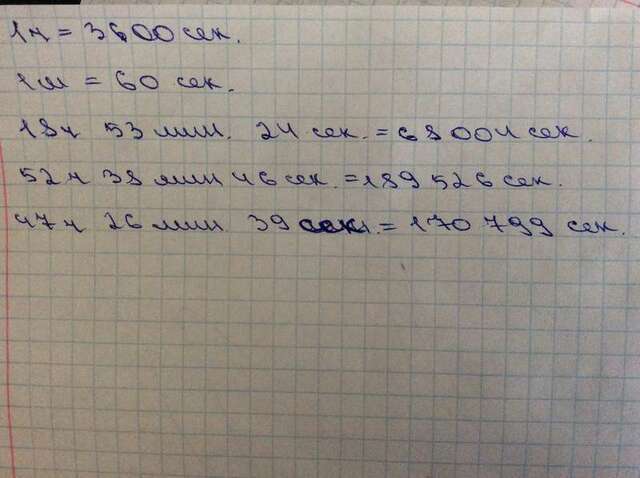 1ч = 3600 сек.
1м = 60 сек.
18ч 53 мин. 24 сек. = 68004 сек.
52ч 38 мин 46 сек. = 189 526 сек.
47ч 26 мин 39 сек. = 170 799 сек.